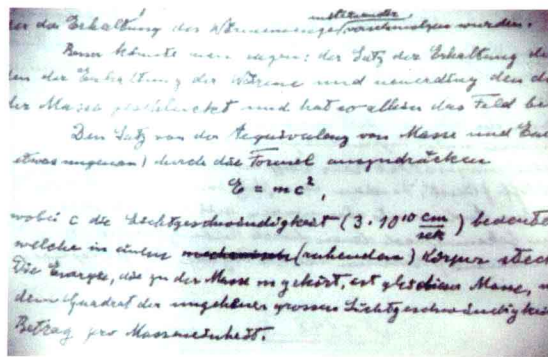 der die Erhaltung der Wärmemenge miteinander verschmolzen wurden.
Besser könnte man sagen: der Satz der Erhaltung de
den der Erhaltung der Wärme und neuerdings den de
der Masse geschluckt und hat so allein das Feld be
Den Satz von der Aequivalenz von Masse und En
etwas ungenau) durch die Formel auszudrücken
E = mc²,
wobei c die Lichtgeschwindigkeit (3·10¹⁰ cm/sek) bedeute
welche in einem (ruhenden) Körper stec
Die Energie, die zu der Masse m gehört, ist gleich dieser Masse, m
dem Quadrat der ungeheuer grossen Lichtgeschwindigkei
Betrag pro Masseneinheit.